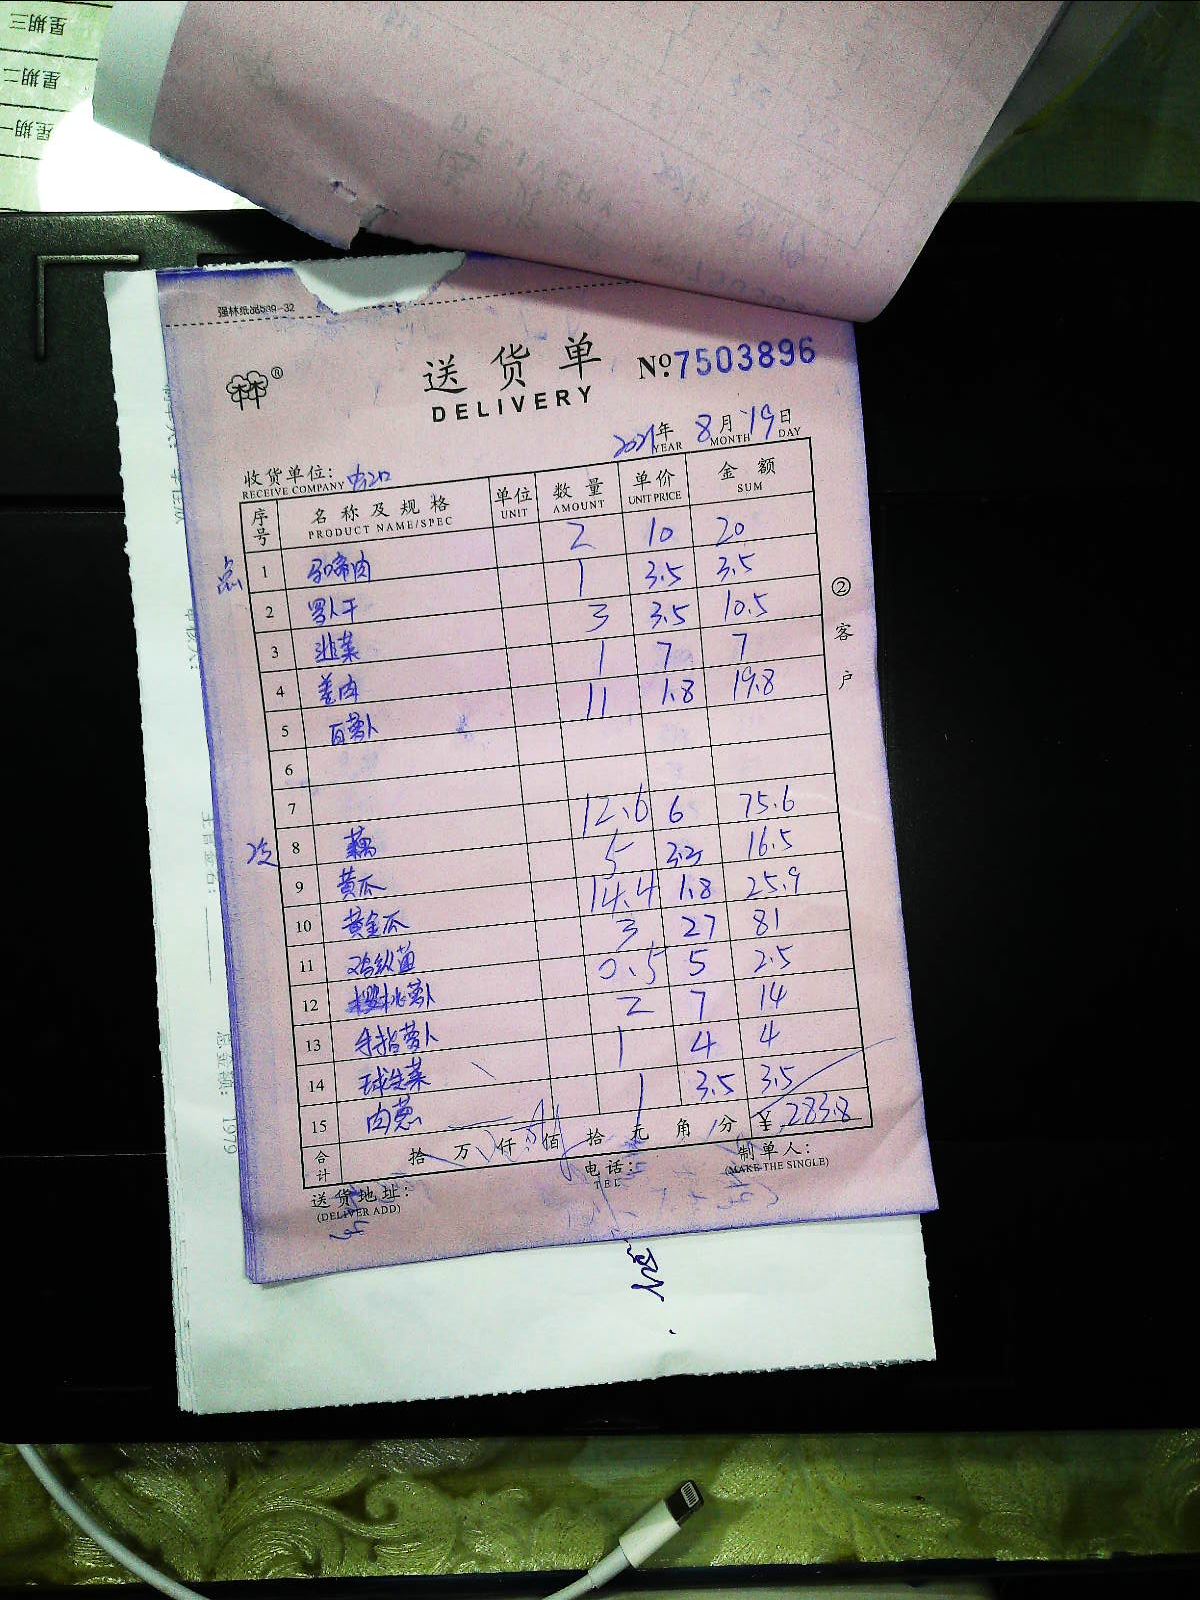 星期三
星期二
星期一
强林纸品509-32
送货单
DELIVERY
No.7503896
2021年 8月 19日
YEAR MONTH DAY
收货单位:
RECEIVE COMPANY
序号 名称及规格 单位 数量 单价 金额
PRODUCT NAME/SPEC UNIT AMOUNT UNIT PRICE SUM
点 1 马蹄肉 2 10 20
2 罗卜干 1 3.5 3.5
3 韭菜 3 3.5 10.5
4 姜肉 1 7 7
5 百萝卜 11 1.8 19.8
6
7
8 藕 12.6 6 75.6
9 黄瓜 5 3.3 16.5
10 黄金瓜 14.4 1.8 25.9
11 鸡纵菌 3 27 81
12 樱桃萝卜 0.5 5 2.5
13 手指萝卜 2 7 14
14 球生菜 1 4 4
15 肉葱 1 3.5 3.5
合计 拾 万 仟 佰 拾 元 角 分 ¥ 283.8
送货地址: 电话: 制单人:
(DELIVER ADD) TEL (MAKE THE SINGLE)
②客户
总金额: 1979